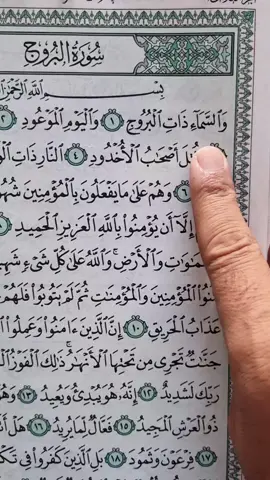 سُورَةُ الْبُرُوجِ
بِسْمِ اللَّهِ الرَّحْمَٰنِ
وَالسَّمَاءِ ذَاتِ الْبُرُوجِ ١ وَالْيَوْمِ الْمَوْعُودِ ٢
قُتِلَ أَصْحَابُ الْأُخْدُودِ ٤ النَّارِ ذَاتِ
٦ وَهُمْ عَلَىٰ مَا يَفْعَلُونَ بِالْمُؤْمِنِينَ
إِلَّا أَن يُؤْمِنُوا بِاللَّهِ الْعَزِيزِ الْحَمِيدِ
وَالْأَرْضِ وَاللَّهُ عَلَىٰ كُلِّ شَيْءٍ
الْمُؤْمِنِينَ وَالْمُؤْمِنَاتِ ثُمَّ لَمْ يَتُوبُوا فَلَهُمْ
عَذَابُ الْحَرِيقِ ١٠ إِنَّ الَّذِينَ ءَامَنُوا وَعَمِلُوا
جَنَّاتٌ تَجْرِي مِن تَحْتِهَا الْأَنْهَارُ ذَٰلِكَ الْفَوْزُ
رَبِّكَ لَشَدِيدٌ ١٢ إِنَّهُ هُوَ يُبْدِئُ وَيُعِيدُ ١٣ وَهُوَ
ذُو الْعَرْشِ الْمَجِيدُ ١٥ فَعَّالٌ لِّمَا يُرِيدُ ١٦ هَلْ
١٧ فِرْعَوْنَ وَثَمُودَ ١٨ بَلِ الَّذِينَ كَفَرُوا فِي